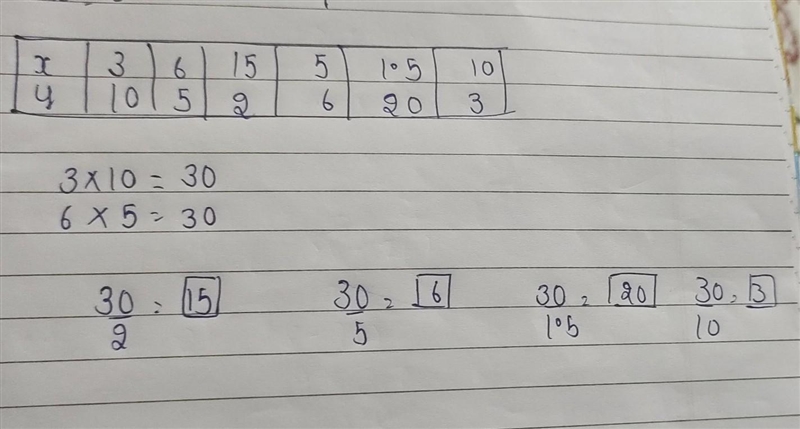 x 3 6 15 5 1.5 10
y 10 5 2 6 20 3
3 × 10 = 30
6 × 5 = 30
30/2 = 15 30/5 = 6 30/1.5 = 20 30/10 = 3